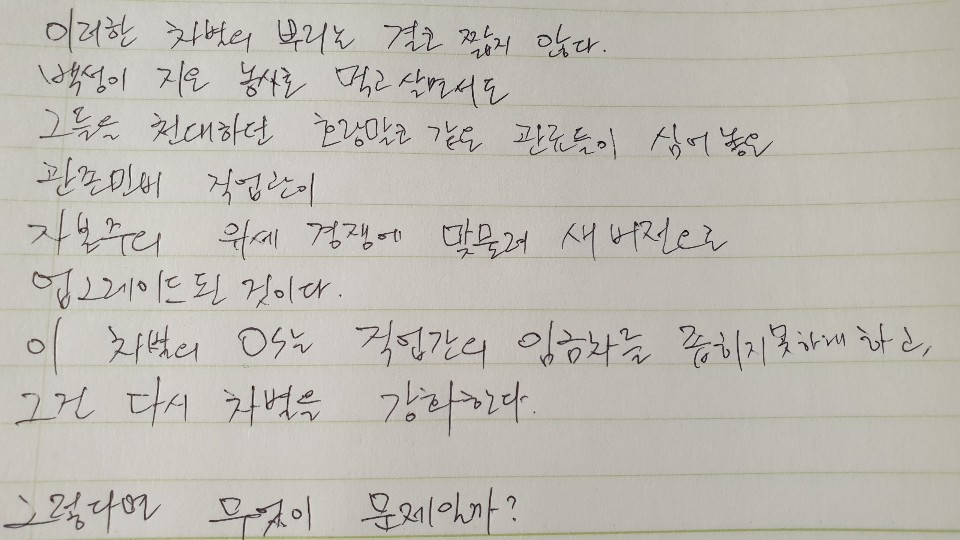 이러한 차별의 뿌리는 결코 짧지 않다.
백성이 지은 농사로 먹고 살면서도
그들을 천대하던 호랑말코 같은 관료들이 심어놓은
관존민비 직업관이
자본주의 위세 경쟁에 맞물려 새 버전으로
업그레이드된 것이다.
이 차별의 OS는 직업간의 임금차를 좁히지못하게 하고,
그건 다시 차별을 강화한다.
그렇다면 무엇이 문제일까?